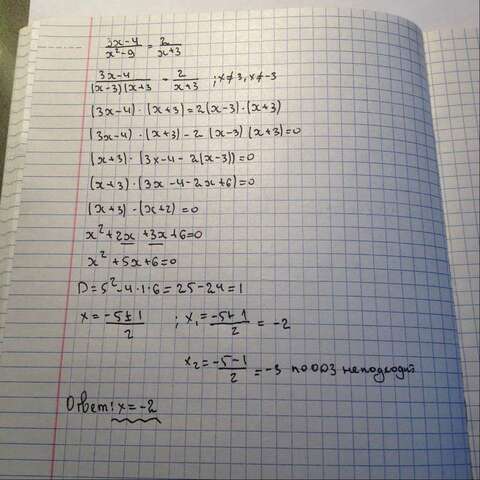 (3x-4)/(x²-9) = 2/(x+3)
(3x-4)/((x-3)(x+3) = 2/(x+3) ; x≠3, x≠-3
(3x-4)·(x+3)=2(x-3)·(x+3)
(3x-4)·(x+3)-2(x-3)(x+3)=0
(x+3)·(3x-4-2(x-3))=0
(x+3)·(3x-4-2x+6)=0
(x+3)·(x+2)=0
x²+2x+3x+6=0
x²+5x+6=0
D=5²-4·1·6=25-24=1
x=(-5±1)/2 ; x₁=(-5+1)/2=-2
x₂=(-5-1)/2=-3 по ОДЗ не подходит
Ответ: x=-2